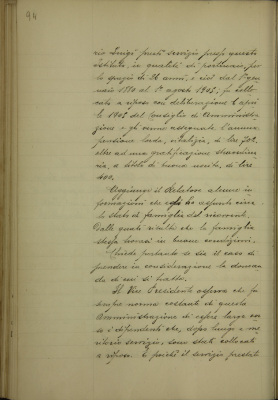 94
rio Luigi prestò servizio presso questo
Istituto, in qualità di portinaio, per
lo spazio di 26 anni, e cioè dal 1° gen
naio 1880 al 1° agosto 1905; fu collo
cato a riposo con deliberazione
1905 del Consiglio di Amministra
zione e gli venne assegnata l'annua
pensione lorda, vitalizia, di lire
oltre ad una gratificazione straordina
ria, a titolo di buona uscita, di lire
400.
Aggiunge il Relatore alcune in
formazioni che egli ha assunte circa
lo stato di famiglia del ricorrente.
Dalle quali risulta che la famiglia
stessa trovasi in buone condizioni.
Chiede pertanto se sia il caso di
prendere in considerazione la doman
da di cui si tratta.
Il Vice Presidente osserva che fu
sempre norma costante di questa
Amministrazione di
i dipendenti che, dopo lungo e me
ritevole servizio, sono stati collocati
a riposo. E poichè il servizio prestato